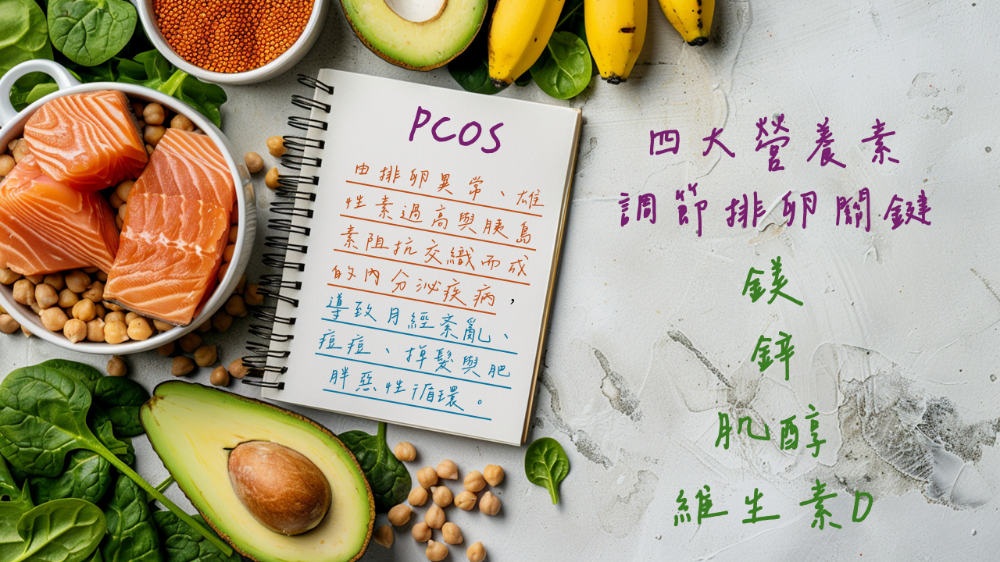 PCOS
由排卵異常、雄
性素過高與胰島
素阻抗交織而成
的內分泌疾病，
導致月經紊亂、
痘痘、掉髮與肥
胖惡性循環。
四大營養素
調節排卵關鍵
鎂
鋅
肌醇
維生素D